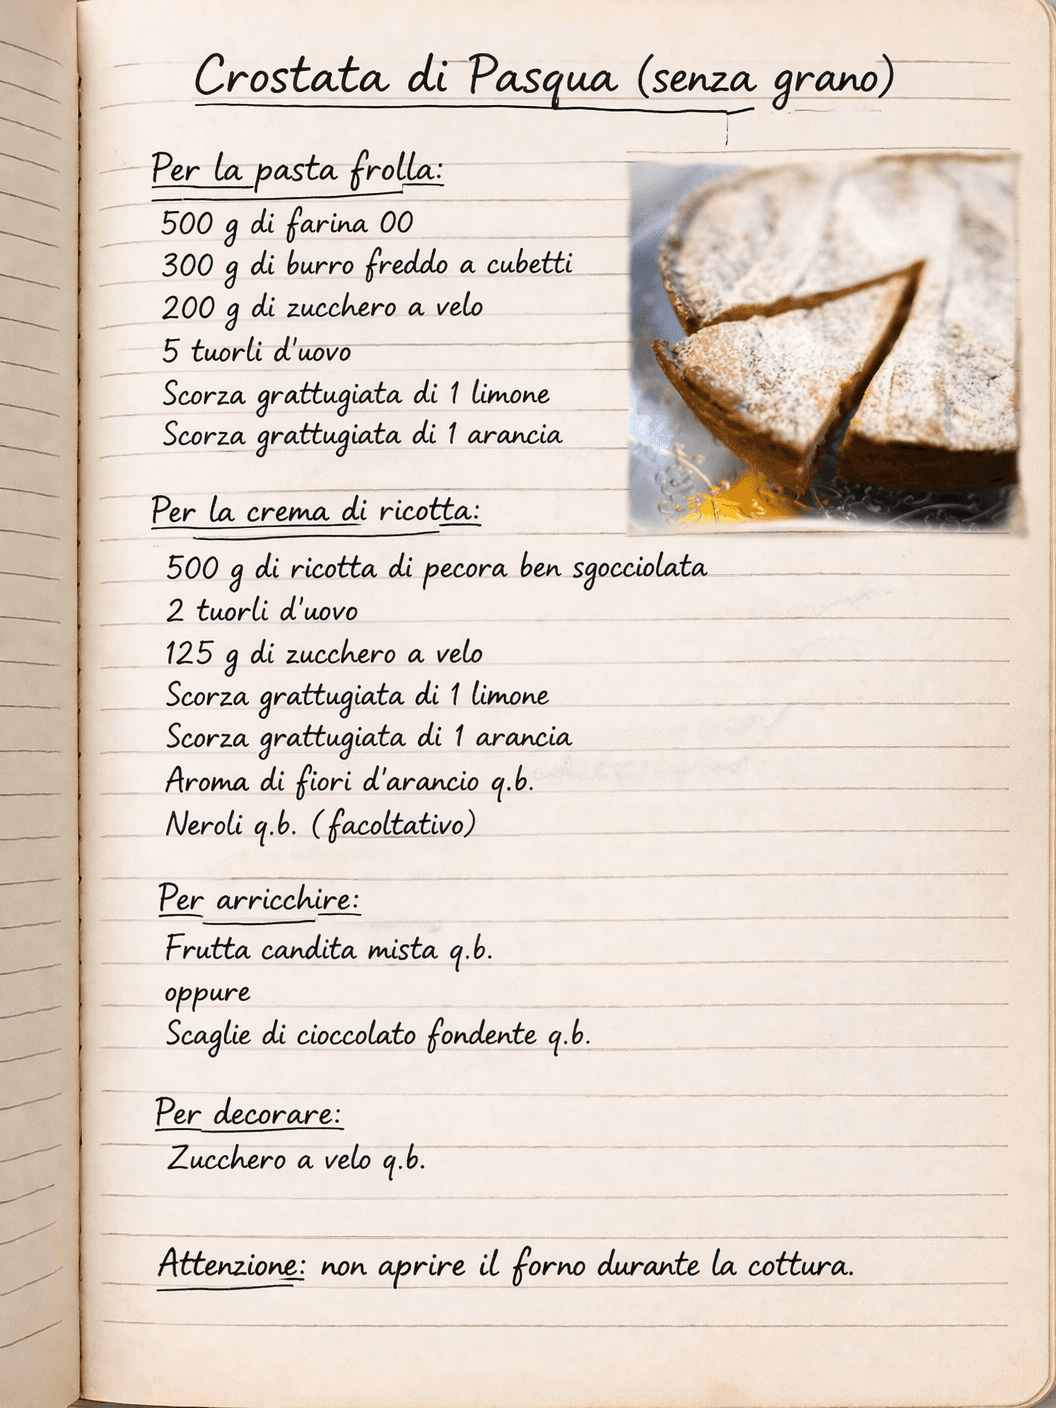 Crostata di Pasqua (senza grano)
Per la pasta frolla:
500 g di farina 00
300 g di burro freddo a cubetti
200 g di zucchero a velo
5 tuorli d'uovo
Scorza grattugiata di 1 limone
Scorza grattugiata di 1 arancia
Per la crema di ricotta:
500 g di ricotta di pecora ben sgocciolata
2 tuorli d'uovo
125 g di zucchero a velo
Scorza grattugiata di 1 limone
Scorza grattugiata di 1 arancia
Aroma di fiori d'arancio q.b.
Neroli q.b. (facoltativo)
Per arricchire:
Frutta candita mista q.b.
oppure
Scaglie di cioccolato fondente q.b.
Per decorare:
Zucchero a velo q.b.
Attenzione: non aprire il forno durante la cottura.